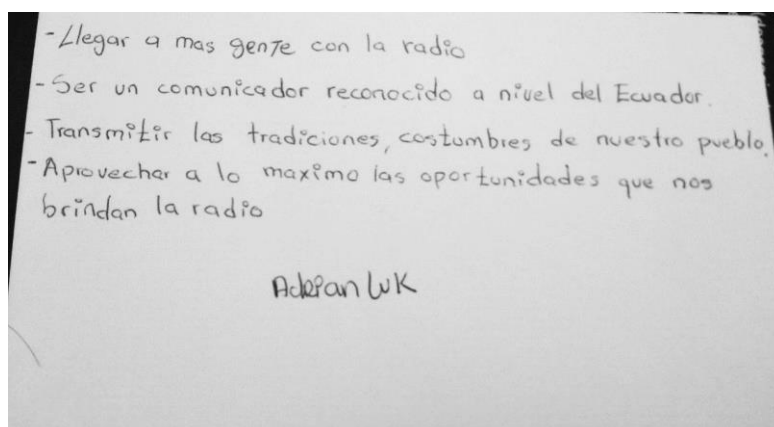 - Llegar a mas gente con la radio
- Ser un comunicador reconocido a nivel del Ecuador.
- Transmitir las tradiciones, costumbres de nuestro pueblo.
- Aprovechar a lo maximo las oportunidades que nos
brindan la radio
Adrian WK